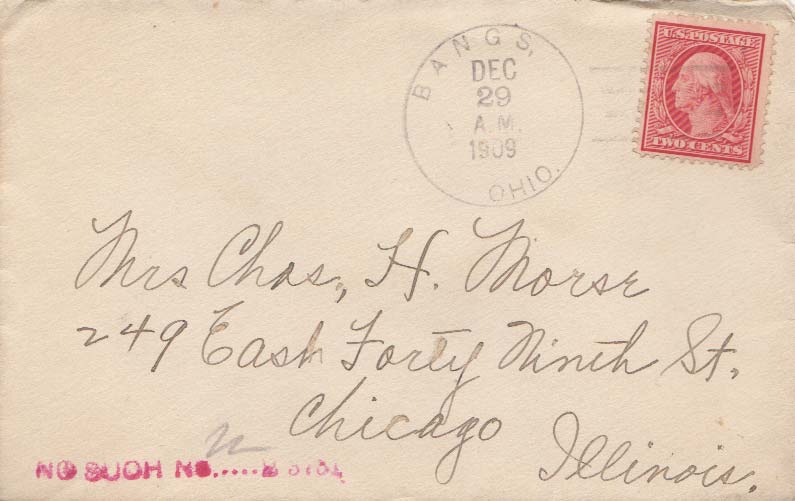 BANGS,
DEC
29
A.M.
1909
OHIO.
U.S. POSTAGE
TWO CENTS
Mrs Chas, H. Morse
249 East Forty Ninth St.
Chicago
Illinois.
NO SUCH NO.....